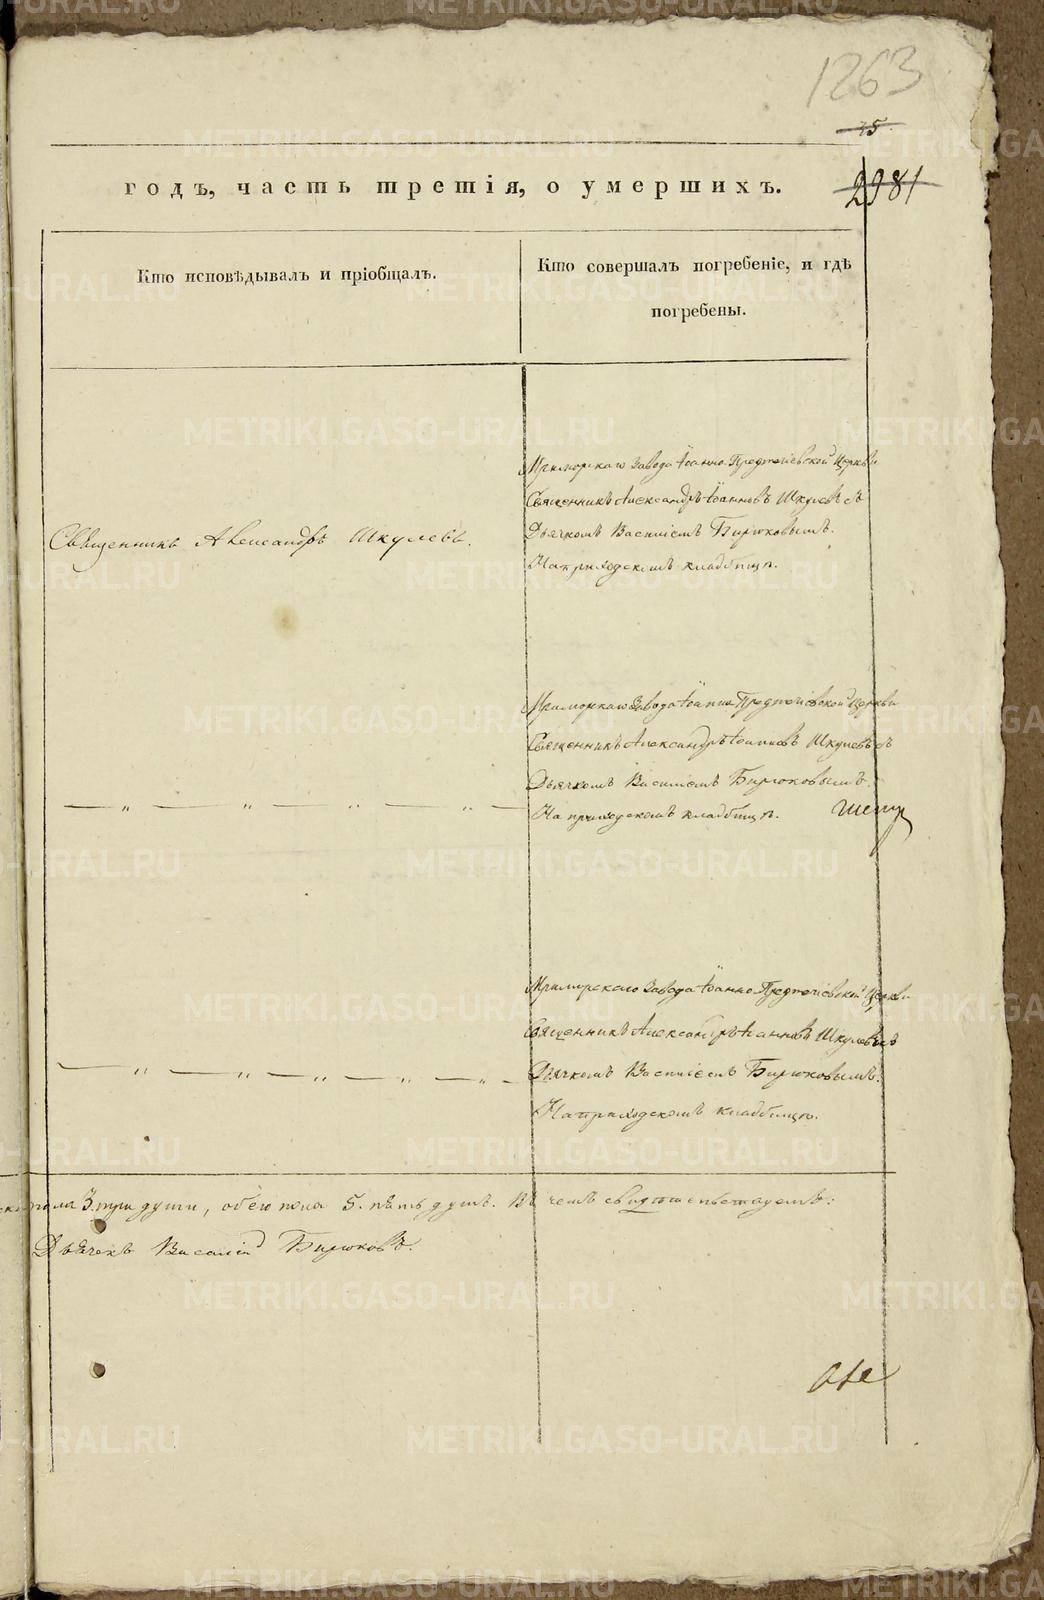 1263
15.
2981
годъ, часть третія, о умершихъ.
Кто исповѣдывалъ и пріобщалъ.
Кто совершалъ погребеніе, и гдѣ
погребены.
Завода Іоанно Предтечіевской Церкви
Священникъ Александръ Іоанновъ Шкулевъ съ
Дьячкомъ Василіемъ Бирюковымъ.
На приходскомъ кладбищѣ.
Священникъ Александръ Шкулевъ.
Завода Іоанно Предтечіевской Церкви
Священникъ Александръ Іоанновъ Шкулевъ съ
Дьячкомъ Василіемъ Бирюковымъ.
На приходскомъ кладбищѣ.
— „ — „ — „ — „ —
Завода Іоанно Предтечіевской Церкви
Священникъ Александръ Іоанновъ Шкулевъ съ
Дьячкомъ Василіемъ Бирюковымъ.
На приходскомъ кладбищѣ.
— „ — „ — „ — „ — „ —
пола 3. три души, обоего пола 5. пять душъ. Въ чемъ свидѣтельствуемъ:
Дьячекъ Василій Бирюковъ.
METRIKI.GASO-URAL.RU